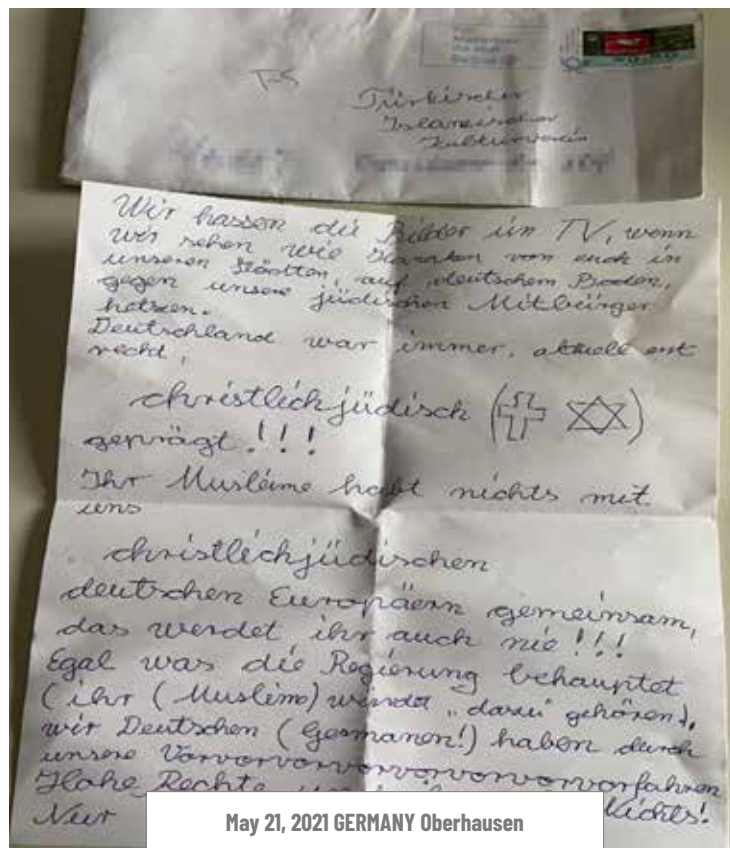 Türkischer
Islamischer
Kulturverein
Wir hassen die Bilder im TV, wenn
wir sehen wie von euch in
unseren Städtten, auf deutschem Boden,
gegen unsere jüdischen Mitbürger
hetzen.
Deutschland war immer, aktuell erst
recht,
christlichjüdisch
geprägt!!!
Ihr Muslime habt nichts mit
uns
christlichjüdischen
deutschen Europäern gemeinsam,
das werdet ihr auch nie!!!
Egal was die Regierung behauptet
(ihr (Muslime) würdet „dazu“ gehören),
wir Deutschen (Germanen!) haben durch
unsere Vorvorvorvorvorvorvorvorfahren
Hohe Rechte
Nur Nichts!
May 21, 2021 GERMANY Oberhausen